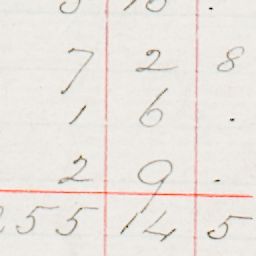 7 2 8
1 6 .
2 9 .
255 14 5